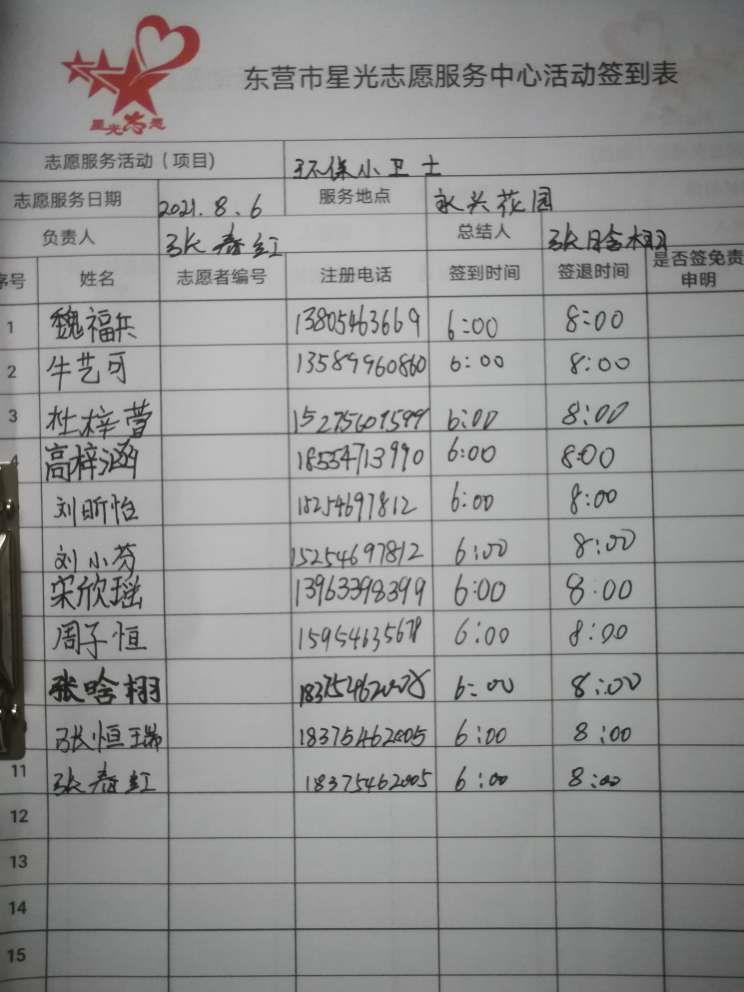 星光志愿
东营市星光志愿服务中心活动签到表
志愿服务活动（项目） 环保小卫士
志愿服务日期 2021.8.6 服务地点 永兴花园
负责人 张春红 总结人 张晗栩
序号 姓名 志愿者编号 注册电话 签到时间 签退时间 是否签免责申明
1 魏福兵 13805463669 6:00 8:00
2 牛艺可 13589960860 6:00 8:00
3 杜梓萱 15275601599 6:00 8:00
4 高梓涵 18554713990 6:00 8:00
刘昕怡 18254697812 6:00 8:00
刘小芬 15254697812 6:00 8:00
宋欣瑶 13963398399 6:00 8:00
周子恒 15954635678 6:00 8:00
张晗栩 6:00 8:00
张恒瑞 18375462005 6:00 8:00
11 张春红 18375462005 6:00 8:00
12
13
14
15